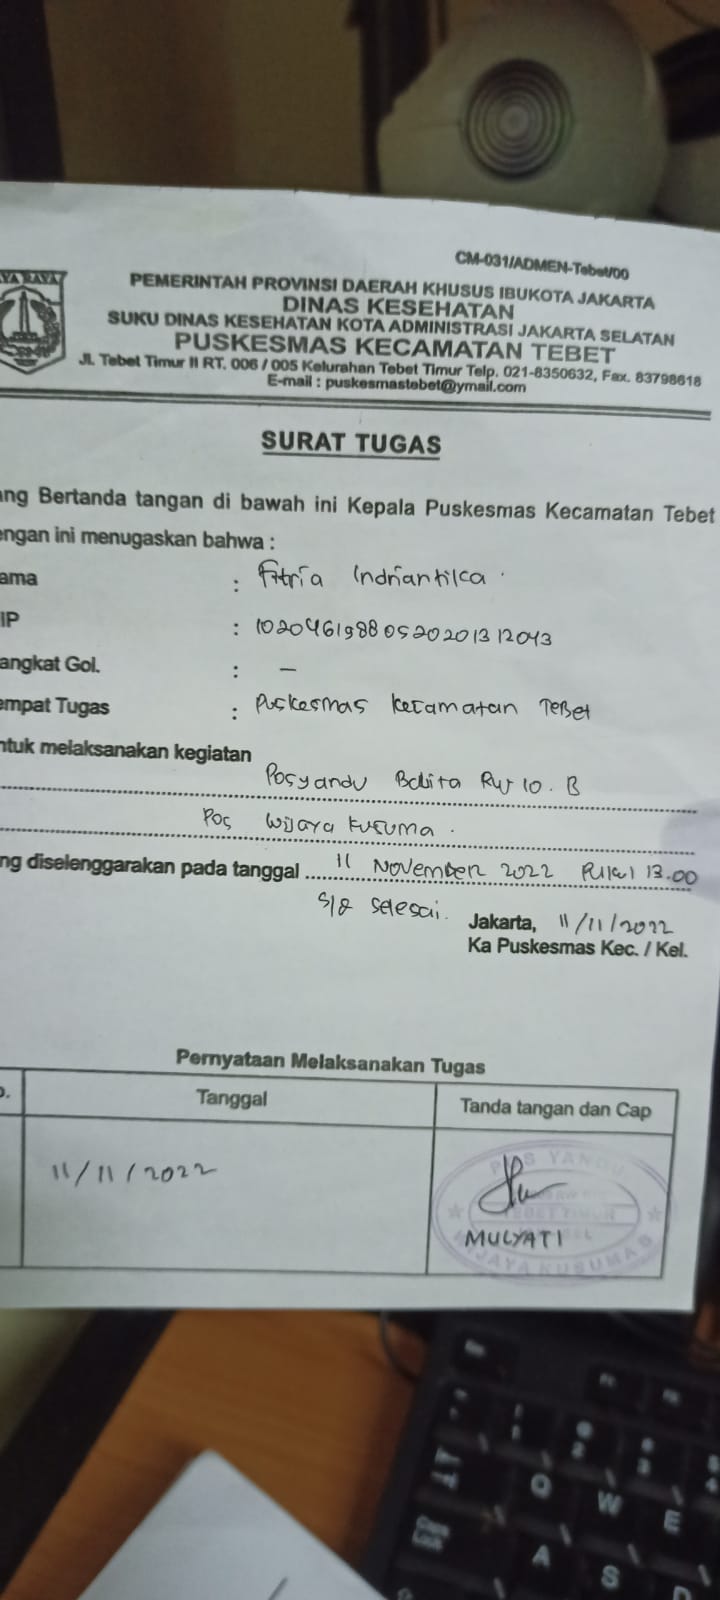 CM-031/ADMEN-Tebet/00
PEMERINTAH PROVINSI DAERAH KHUSUS IBUKOTA JAKARTA
DINAS KESEHATAN
SUKU DINAS KESEHATAN KOTA ADMINISTRASI JAKARTA SELATAN
PUSKESMAS KECAMATAN TEBET
Jl. Tebet Timur II RT. 006 / 005 Kelurahan Tebet Timur Telp. 021-8350632, Fax. 83798618
E-mail : puskesmastebet@ymail.com
SURAT TUGAS
ang Bertanda tangan di bawah ini Kepala Puskesmas Kecamatan Tebet
engan ini menugaskan bahwa :
ama : Fitria Indriantika
IP : 10204619880520201312043
angkat Gol. : -
empat Tugas : Puskesmas Kecamatan Tebet
ntuk melaksanakan kegiatan
Posyandu Balita RW 10. B
Pos Wijaya Kusuma.
ng diselenggarakan pada tanggal 11 November 2022 Pukul 13.00
s/d selesai.
Jakarta, 11/11/2022
Ka Puskesmas Kec. / Kel.
Pernyataan Melaksanakan Tugas
o. Tanggal Tanda tangan dan Cap
11/11/2022
POS YANDU
TEBET TIMUR
MULYATI
WIJAYA KUSUMA B
Caps Lock
Q W E
A S D